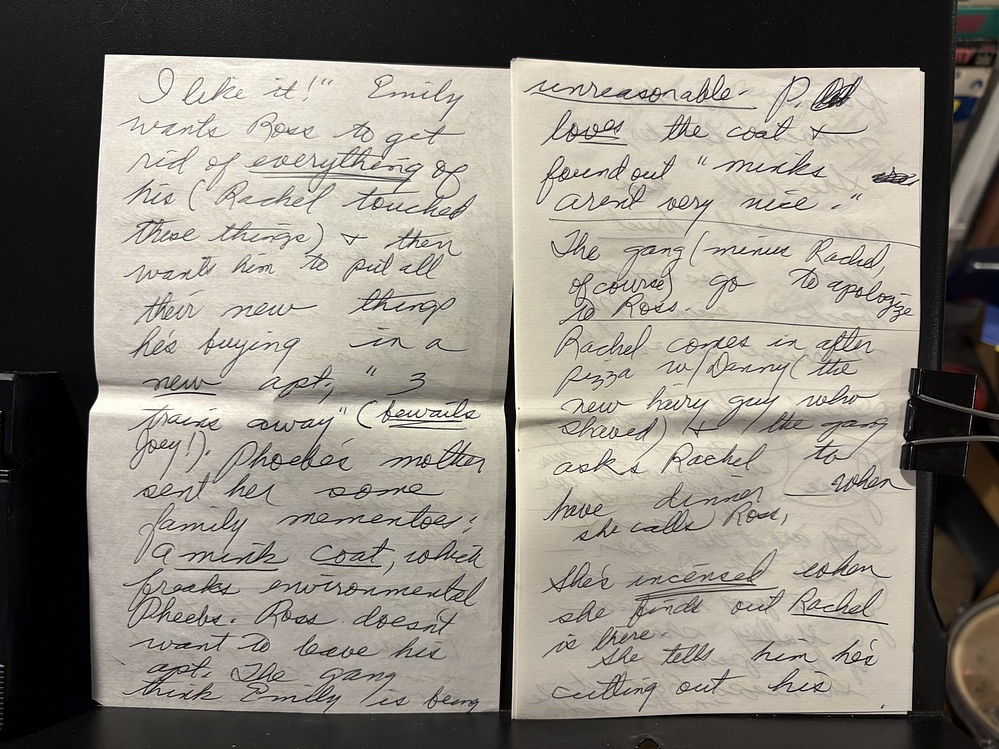 I like it!" Emily
wants Ross to get
rid of everything of
his (Rachel touched
these things) & then
wants him to put all
their new things
he's buying in a
new apt, "3
trains away" (bewails
Joey!). Phoebe's mother
sent her some
family mementoes:
a mink coat, which
freaks environmental
Pheebs. Ross doesn't
want to leave his
apt. The gang
think Emily is being
unreasonable. P.
loves the coat &
found out "minks
aren't very nice."
The gang (minus Rachel,
of course) go to apologize
to Ross.
Rachel comes in after
pizza w/ Danny (the
new hairy guy who
shaved) & the gang
asks Rachel to
have dinner when
she calls Ross,
She's incensed when
she finds out Rachel
is there.
She tells him he's
cutting out his